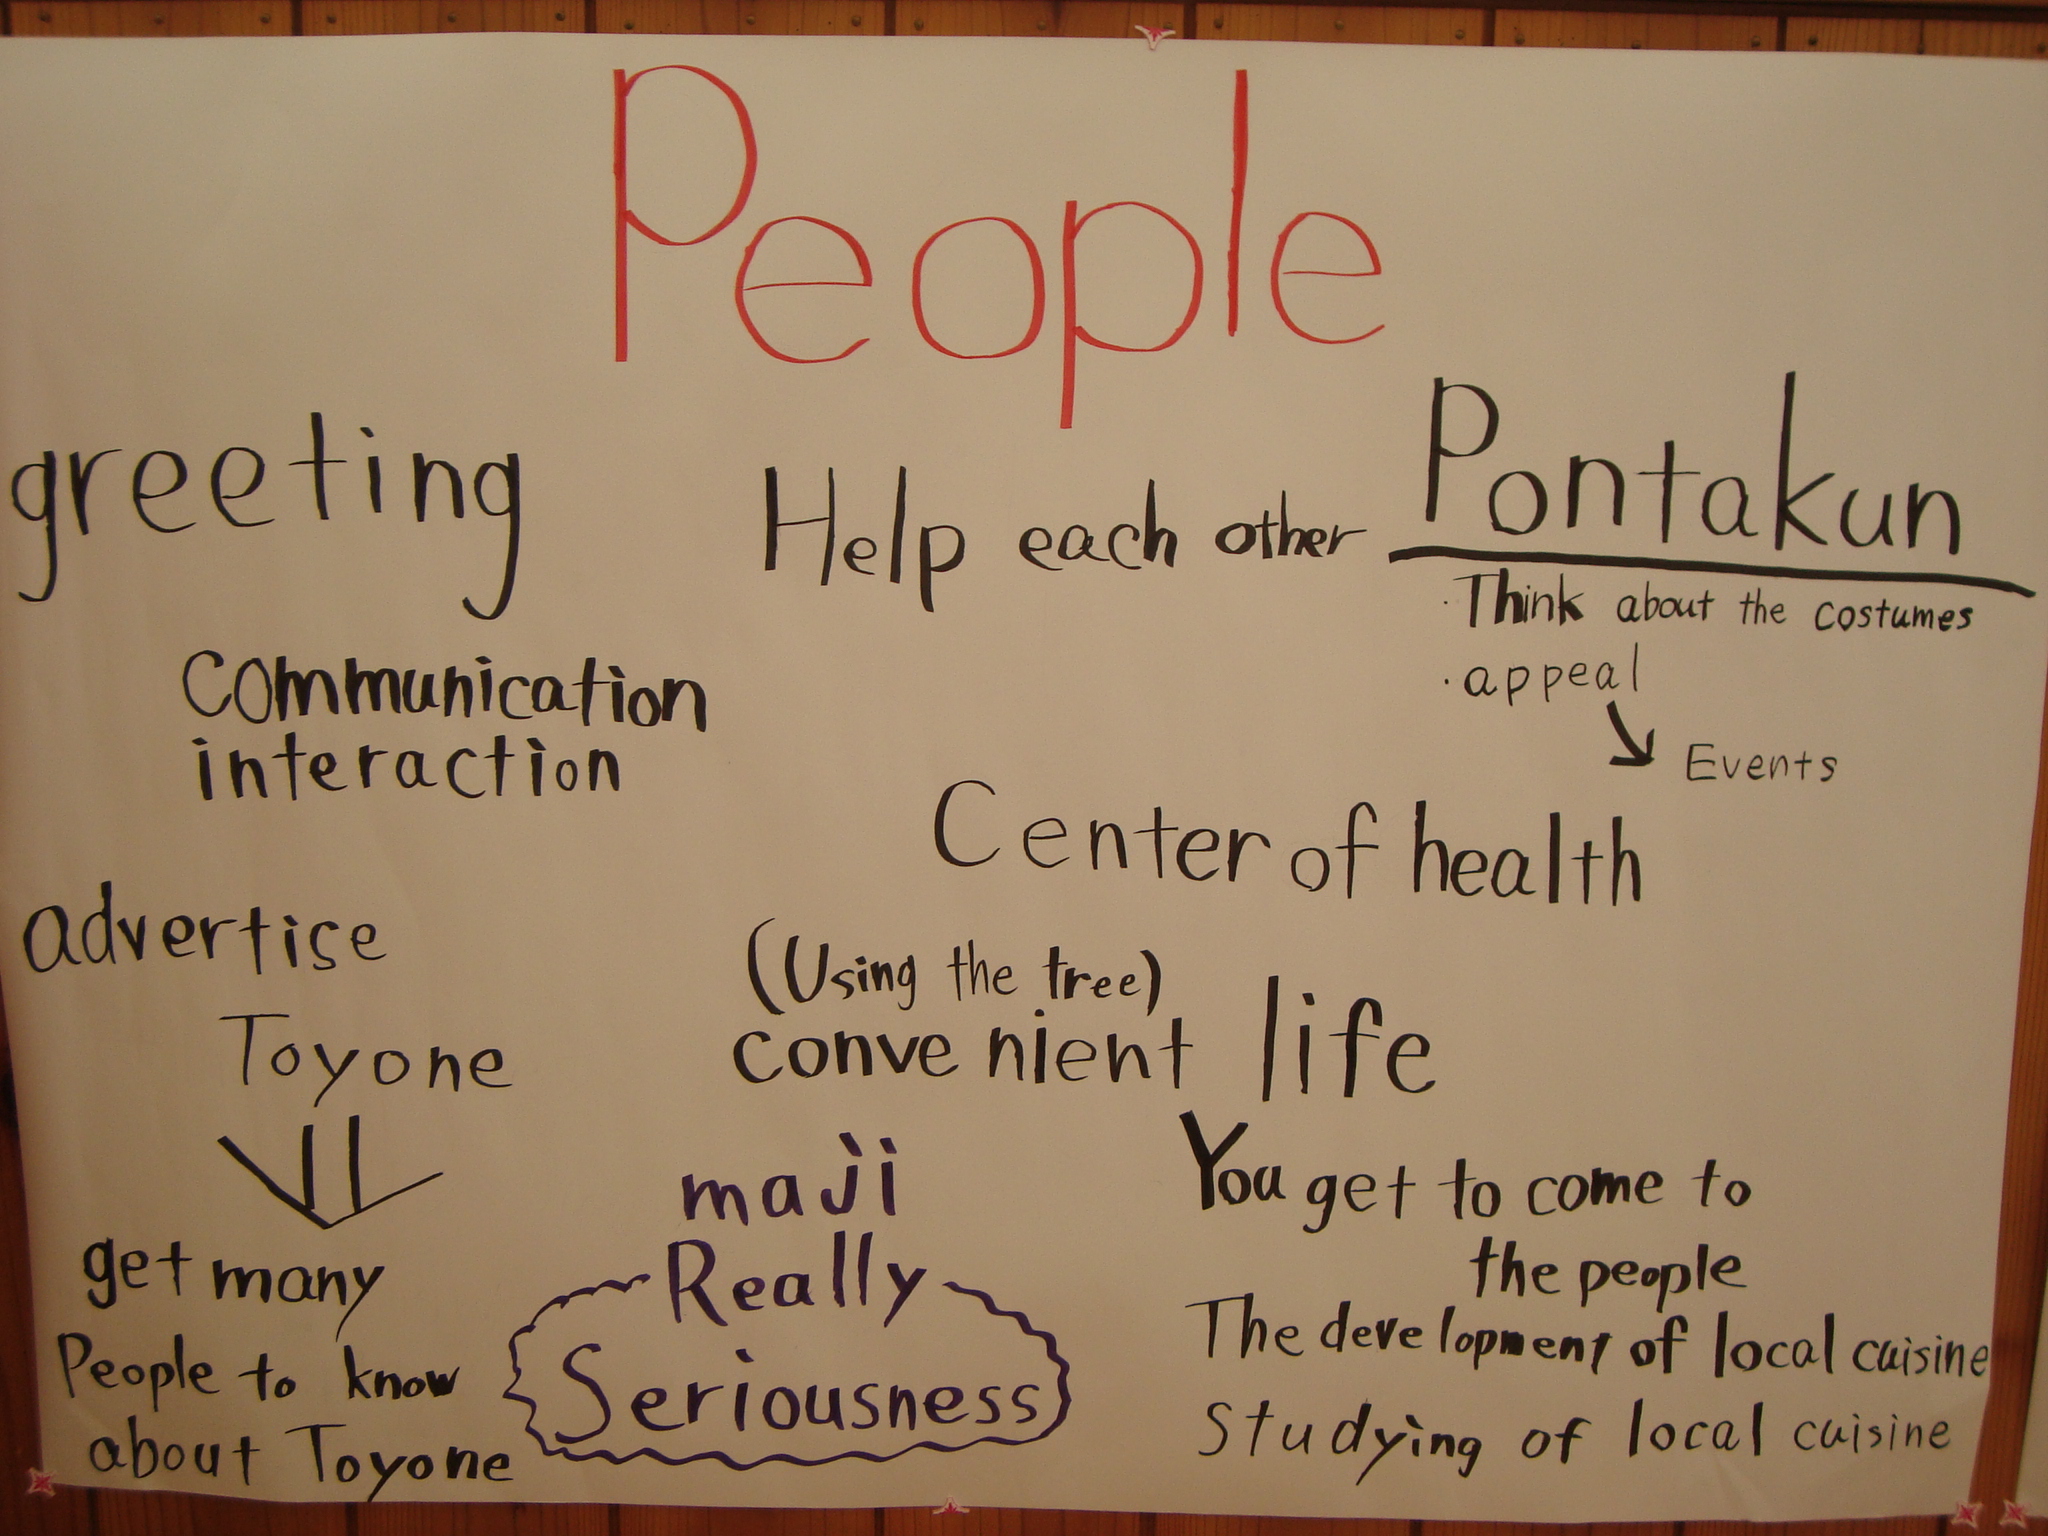 People
greeting
Help each other
Pontakun
· Think about the costumes
· appeal
Events
communication
interaction
Center of health
advertise
Toyone
(Using the tree)
convenient life
get many
People to know
about Toyone
maji
Really
Seriousness
You get to come to
the people
The development of local cuisine
Studying of local cuisine